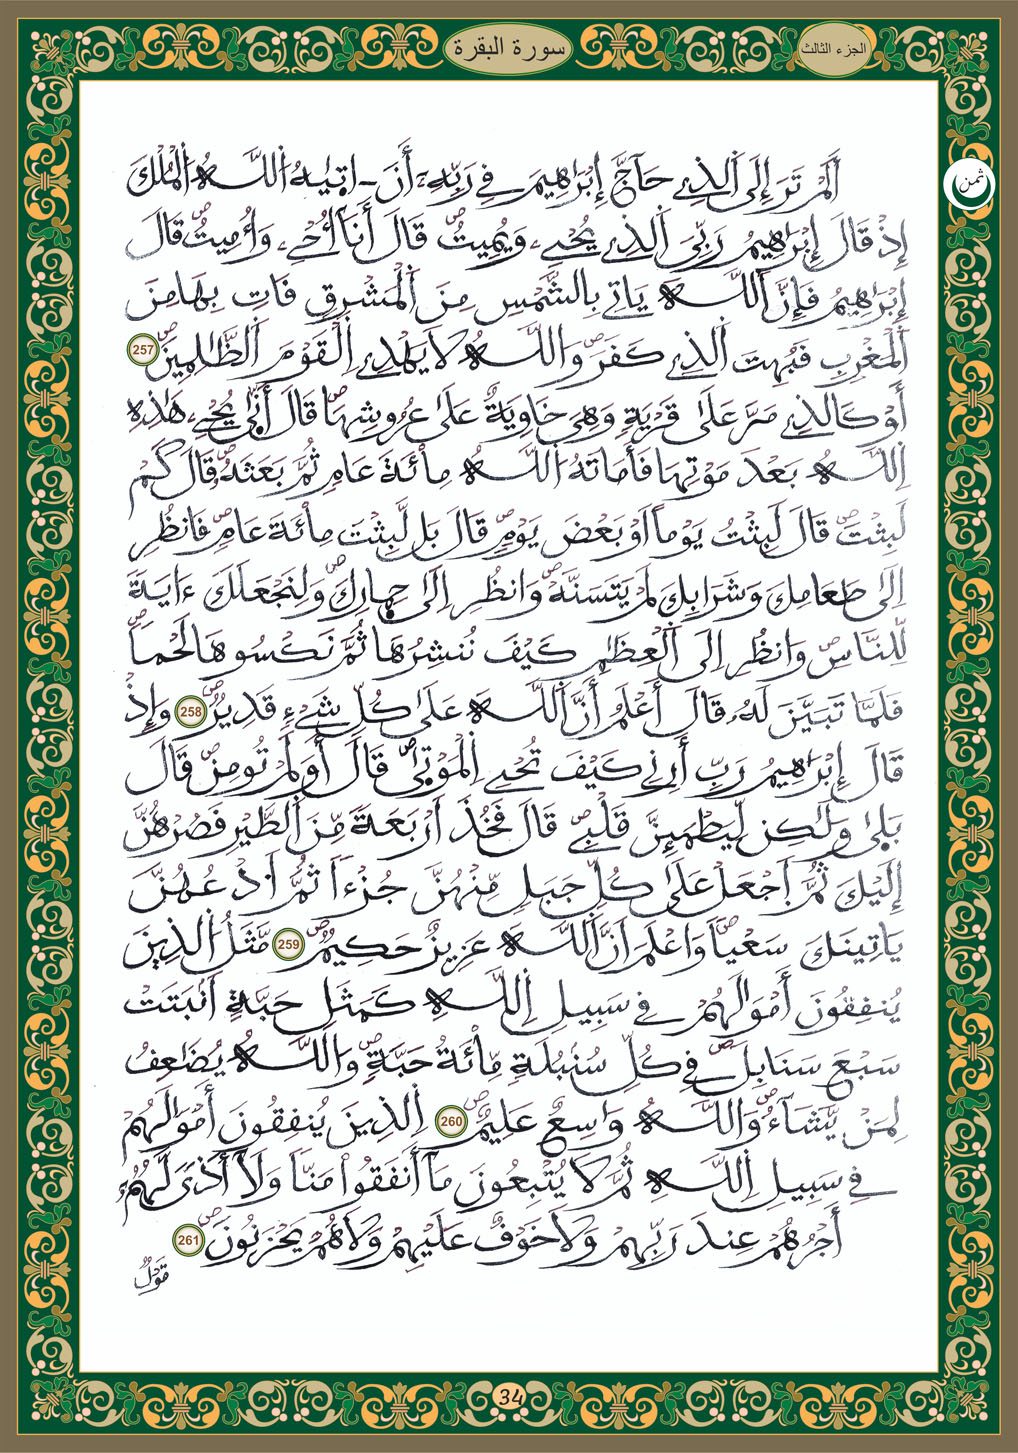 الجزء الثالث
سورة البقرة
ثمن
أَلَمْ تَرَ إِلَى اَلذِے حَآجَّ إِبْرَٰهِيمَ فِے رَبِّهِۦٓ أَنَ ـ اتٜيٰهُ اُللَّهُ اُلْمُلْكَ
إِذْ قَالَ إِبْرَٰهِيمُ رَبِّيَ اَلذِے يُحْيِۦ وَيُمِيتُۖ قَالَ أَنَآ أُحْيِۦ وَأُمِيتُۖ قَالَ
إِبْرَٰهِيمُ فَإِنَّ اَللَّهَ يَاتِے بِالشَّمْسِ مِنَ اَلْمَشْرِقِ فَاتِ بِهَا مِنَ
اَلْمَغْرِبِ فَبُهِتَ اَلذِے كَفَرَۖ وَاللَّهُ لَا يَهْدِے اِلْقَوْمَ اَلظَّٰلِمِينَۖ 257
أَوْ كَالذِے مَرَّ عَلَىٰ قَرْيَةٖ وَهِيَ خَاوِيَةٌ عَلَىٰ عُرُوشِهَاۖ قَالَ أَنّٜىٰ يُحْيِۦ هَٰذِهِ
اِللَّهُ بَعْدَ مَوْتِهَاۖ فَأَمَاتَهُ اُللَّهُ مِاْئَةَ عَامٖ ثُمَّ بَعَثَهُۥۖ قَالَ كَمْ
لَبِثْتَۖ قَالَ لَبِثْتُ يَوْماً اَوْ بَعْضَ يَوْمٖۖ قَالَ بَل لَّبِثْتَ مِاْئَةَ عَامٖۖ فَانظُرِ
اِلَىٰ طَعَامِكَ وَشَرَابِكَ لَمْ يَتَسَنَّهْۖ وَانظُرِ اِلَىٰ حِمٜارِكَۖ وَلِنَجْعَلَكَ ءَايَةٗ
لِّلنَّاسِۖ وَانظُرِ اِلَى اَلْعِظَٰمِ كَيْفَ نُنشِرُهَا ثُمَّ نَكْسُوهَا لَحْماٗۖ
فَلَمَّا تَبَيَّنَ لَهُۥ قَالَ أَعْلَمُ أَنَّ اَللَّهَ عَلَىٰ كُلِّ شَےْءٖ قَدِيرٌۖ 258 وَإِذْ
قَالَ إِبْرَٰهِيمُ رَبِّ أَرِنِے كَيْفَ تُحْيِ اِلْمَوْتٜىٰۖ قَالَ أَوَلَمْ تُومِنۖ قَالَ
بَلٜىٰ وَلَٰكِن لِّيَطْمَئِنَّ قَلْبِےۖ قَالَ فَخُذَ اَرْبَعَةٗ مِّنَ اَلطَّيْرِ فَصُرْهُنَّ
إِلَيْكَ ثُمَّ اَجْعَلْ عَلَىٰ كُلِّ جَبَلٖ مِّنْهُنَّ جُزْءاٗ ثُمَّ اَدْعُهُنَّ
يَاتِينَكَ سَعْياٗۖ وَاعْلَمَ اَنَّ اَللَّهَ عَزِيزٌ حَكِيمٞۖ 259 مَّثَلُ اُلذِينَ
يُنفِقُونَ أَمْوَٰلَهُمْ فِے سَبِيلِ اِللَّهِ كَمَثَلِ حَبَّةٍ اَنۢبَتَتْ
سَبْعَ سَنَابِلَۖ فِے كُلِّ سُنۢبُلَةٖ مِّاْئَةُ حَبَّةٖۖ وَاللَّهُ يُضَٰعِفُ
لِمَنْ يَّشَآءُۖ وَاللَّهُ وَٰسِعٌ عَلِيمٌۖ 260 اِلذِينَ يُنفِقُونَ أَمْوَٰلَهُمْ
فِے سَبِيلِ اِللَّهِ ثُمَّ لَا يُتْبِعُونَ مَآ أَنفَقُواْ مَنّاٗ وَلَآ أَذىٗ لَّهُمُۥٓ
أَجْرُهُمْ عِندَ رَبِّهِمْ وَلَا خَوْفٌ عَلَيْهِمْ وَلَا هُمْ يَحْزَنُونَۖ 261
قَوْلٌ
34